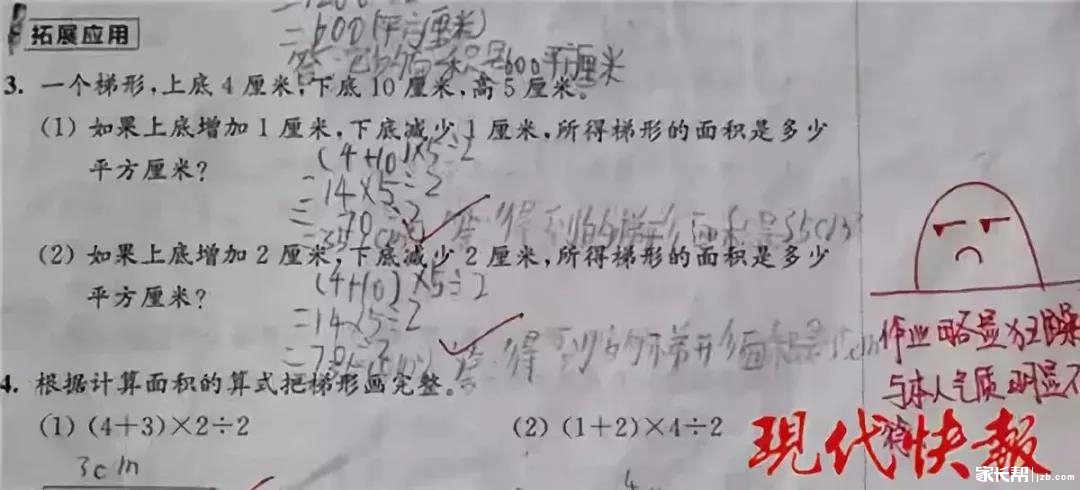 =600(平方厘米)
拓展应用
答:它的面积是600平方厘米
3. 一个梯形,上底4厘米,下底10厘米,高5厘米。
(1) 如果上底增加1厘米,下底减少1厘米,所得梯形的面积是多少
平方厘米?
(4+10)×5÷2
=14×5÷2
=70÷2
答:得到的梯形面积是35cm²
(2) 如果上底增加2厘米,下底减少2厘米,所得梯形的面积是多少
平方厘米?
(4+10)×5÷2
=14×5÷2
=70÷2
答:得到的梯形面积是
作业略显狂躁
与本人气质明显不
符
4. 根据计算面积的算式把梯形画完整。
(1) (4+3)×2÷2
(2) (1+2)×4÷2
3cm
4
現代快報
家长帮 jzb.com